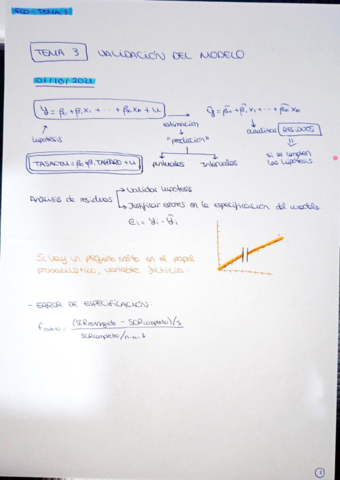 ECO - TEMA 3
TEMA 3 VALIDACIÓN DEL MODELO
01/10/2021
y = β₀ + β₁x₁ + ... + βₖxₖ + u → ŷ = β̂₀ + β̂₁x₁ + ... + β̂ₖxₖ
estimación
hipótesis "predicción" analizar RESIDUOS
TASACTIV = β₀ + β₁ + u puntuales intervalos si se cumplen
las hipótesis
Análisis de residuos → Validar hipótesis
→ Justificar errores en la especificación del modelo
eᵢ = yᵢ - ŷᵢ
Si hay un pequeño salto en el papel
probabilístico, variable ficticia.
- ERROR DE ESPECIFICACIÓN.
(SCRrestringido - SCRcompleto)/s
SCRcompleto/n-k-1
1